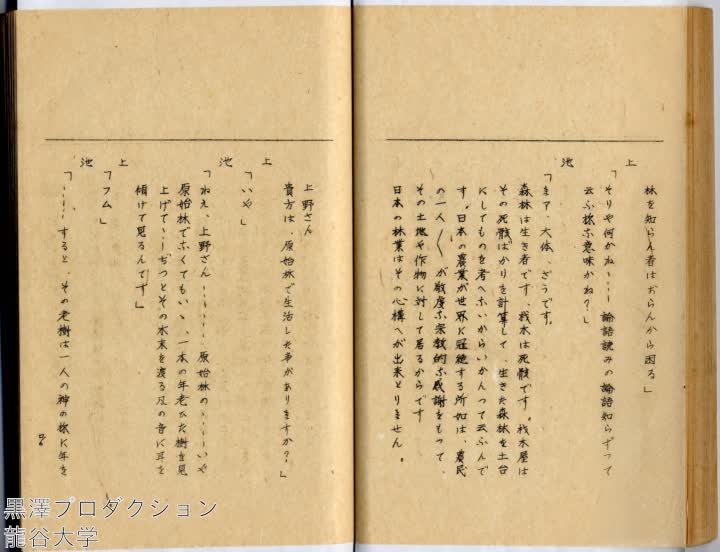 林を知らん者はおらんから困る」
上
「そりや何かね……論語読みの論語知らずつて
云ふ様な意味かね？」
池
「まア、大体、さうです。
森林は生き者です、伐木は死骸です。伐木屋は
その死骸ばかりを計算して、生きた森林を土台
にしてものを考へないからいかんつて云ふんで
す。日本の農業が世界に冠絶する所以は、農民
の一人〳〵が敬虔な宗教的な感謝をもつて、
その土地や作物に対して居るからです
日本の林業はその心構へが出来とりません。
上野さん
貴方は、原始林で生活した事がありますか？」
上
「いや」
池
「ねえ、上野さん………原始林の………いや
原始林でなくてもいゝ、一本の年老ひた樹を見
上げて……ぢつとその木末を渡る風の音に耳を
傾けて見るんです」
上
「フム」
池
「………すると、その老樹は一人の神の様に年を
黒澤プロダクション
龍谷大学